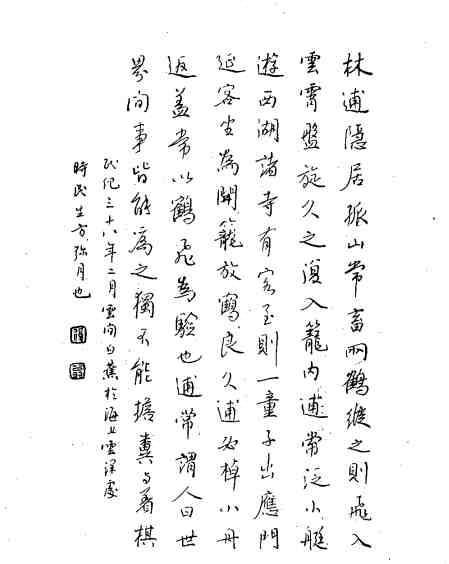 林逋隱居孤山常畜兩鶴縱之則飛入
雲霄盤旋久之復入籠內逋常泛小艇
遊西湖諸寺有客至則一童子出應門
延客坐為開籠放鶴良久逋必棹小舟
返蓋常以鶴飛為驗也逋常謂人曰世
界間事皆能為之獨不能擔糞与着棋
民紀三十八年二月雲間白蕉於海上雲深處
時民生方弥月也